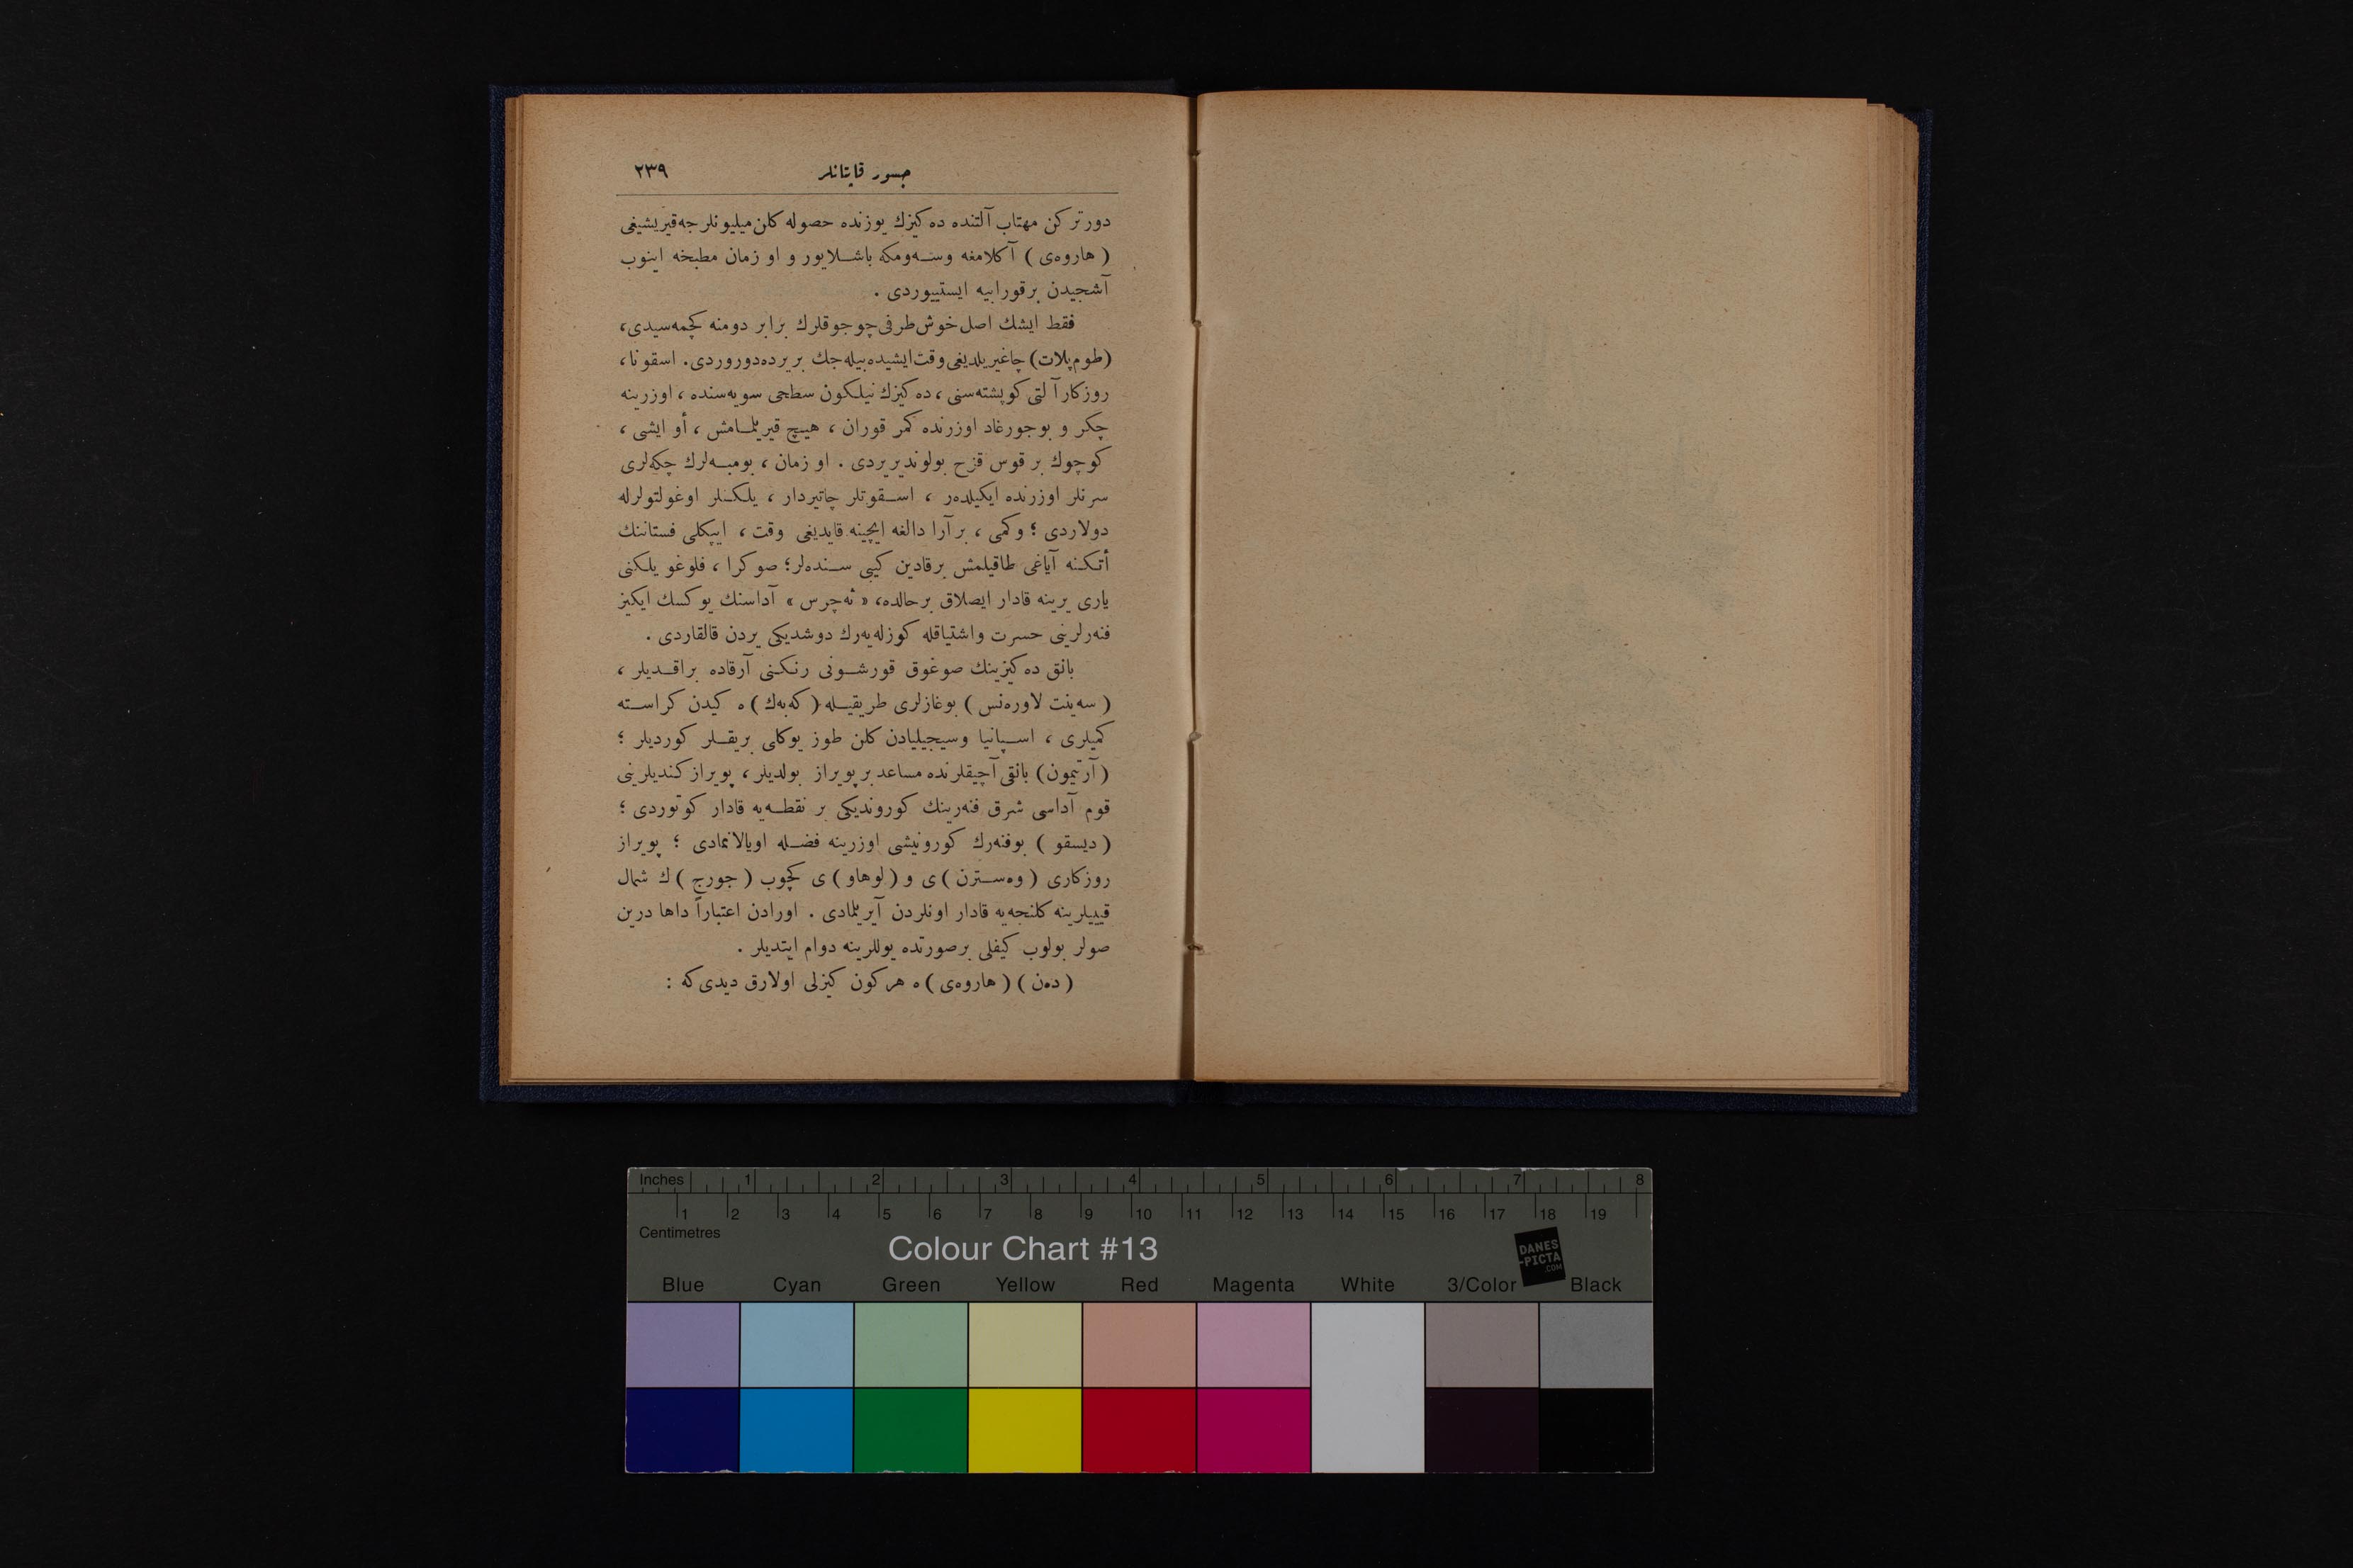 جسور قاپتانلر ٢٣٩
دورتركن مهتاب آلتنده ده كيزك يوزنده حصوله كلن ميليونلرجه قيريشيغى
( هاروه‌ى ) آ كلامغه وسه‌ومكه باشلايور و او زمان مطبخه اينوب
آشجيدن برقورابيه ايستييوردى .
فقط ايشك اصل خوش طرفى چوجوقلرك برابر دومنه كچمه‌سيدى،
(طوم پلات) چاغيريلديغى وقت ايشيده‌بيله‌جك بر يرده دوروردى. اسقونا،
روزكار آلتى كوپشته‌سنى ، ده كيزك نيلكون سطحى سويه‌سنده ، اوزرينه
چكر و بوجورغاد اوزرنده كمر قوران ، هيچ قيريلمامش ، أو ايشى ،
كوچوك بر قوس قزح بولونديريردى . او زمان ، بومبه‌لرك چكه‌لرى
سرنلر اوزرنده ايكيلده‌ر ، اسقوتلر چاتيردار ، يلكنلر اوغولتولرله
دولاردى ؛ وكمى ، بر آرا دالغه ايچينه قايديغى وقت ، ايپكلى فستاننك
أتكنه آياغى طاقيلمش برقادين كيبى سنده‌لر؛ صوكرا ، فلوغو يلكنى
يارى يرينه قادار ايصلاق برحالده، « ثه‌چرس » آداسنك يوكسك ايكيز
فنه‌رلرينى حسرت واشتياقله كوزله‌يه‌رك دوشديكى يردن قالقاردى .
بانق ده كيزينك صوغوق قورشونى رنكنى آرقاده براقديلر ،
( سه‌ينت لاوره‌نس ) بوغازلرى طريقيله ( كه‌به‌ك ) ه كيدن كراسته
كميلرى ، اسپانيا وسيجيليادن كلن طوز يوكلى بريقلر كورديلر ؛
( آرتيمون ) بانقى آچيقلرنده مساعد بر پويراز بولديلر ، پويراز كنديلرينى
قوم آداسى شرق فنه‌رينك كوروندیكى بر نقطه‌يه قادار كوتوردى ؛
( ديسقو ) بوفنه‌رك كورونيشى اوزرينه فضله اويالانمادى ؛ پويراز
روزكارى ( وه‌سترن ) ى و ( لوهاو ) ى كچوب ( جورج ) ك شمال
قييلرينه كلنجه‌يه قادار اونلردن آيريلمادى . اورادن اعتباراً داها درين
صولر بولوب كيفلى برصورتده يوللرينه دوام ايتديلر .
( ده‌ن ) ( هاروه‌ى ) ه هركون كيزلى اولارق ديدى كه :
Inches 1 2 3 4 5 6 7 8
1 2 3 4 5 6 7 8 9 10 11 12 13 14 15 16 17 18 19
Centimetres
Colour Chart #13
DANES
-PICTA
.COM
Blue Cyan Green Yellow Red Magenta White 3/Color Black